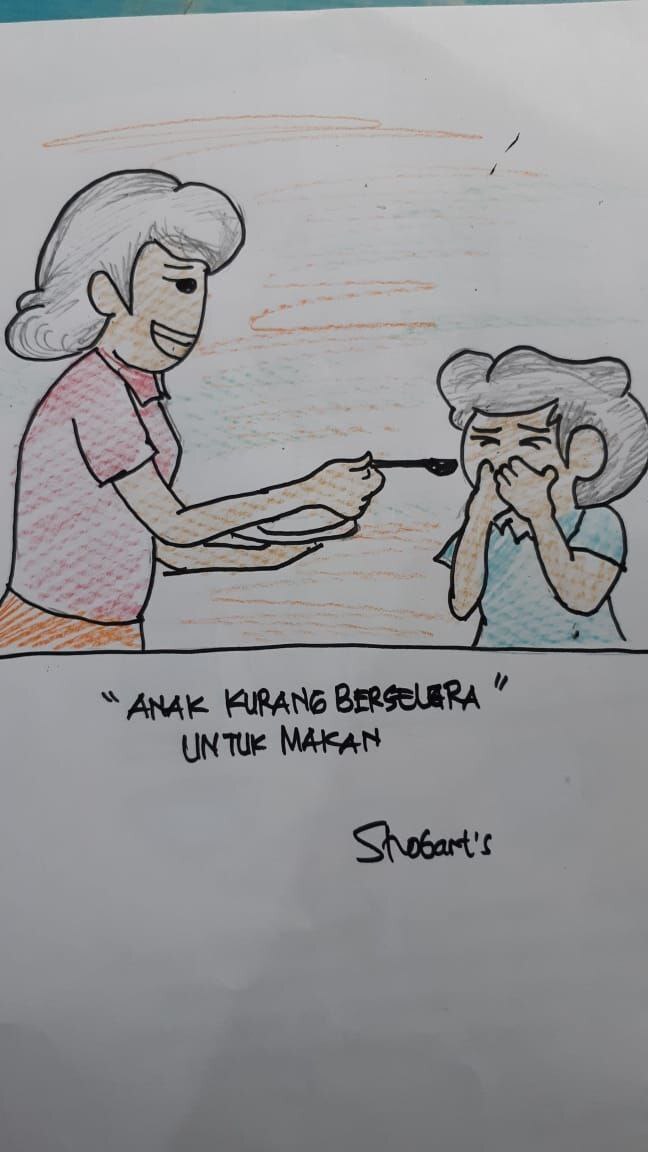 "ANAK KURANG BERSELERA"
UNTUK MAKAN
Shobart's